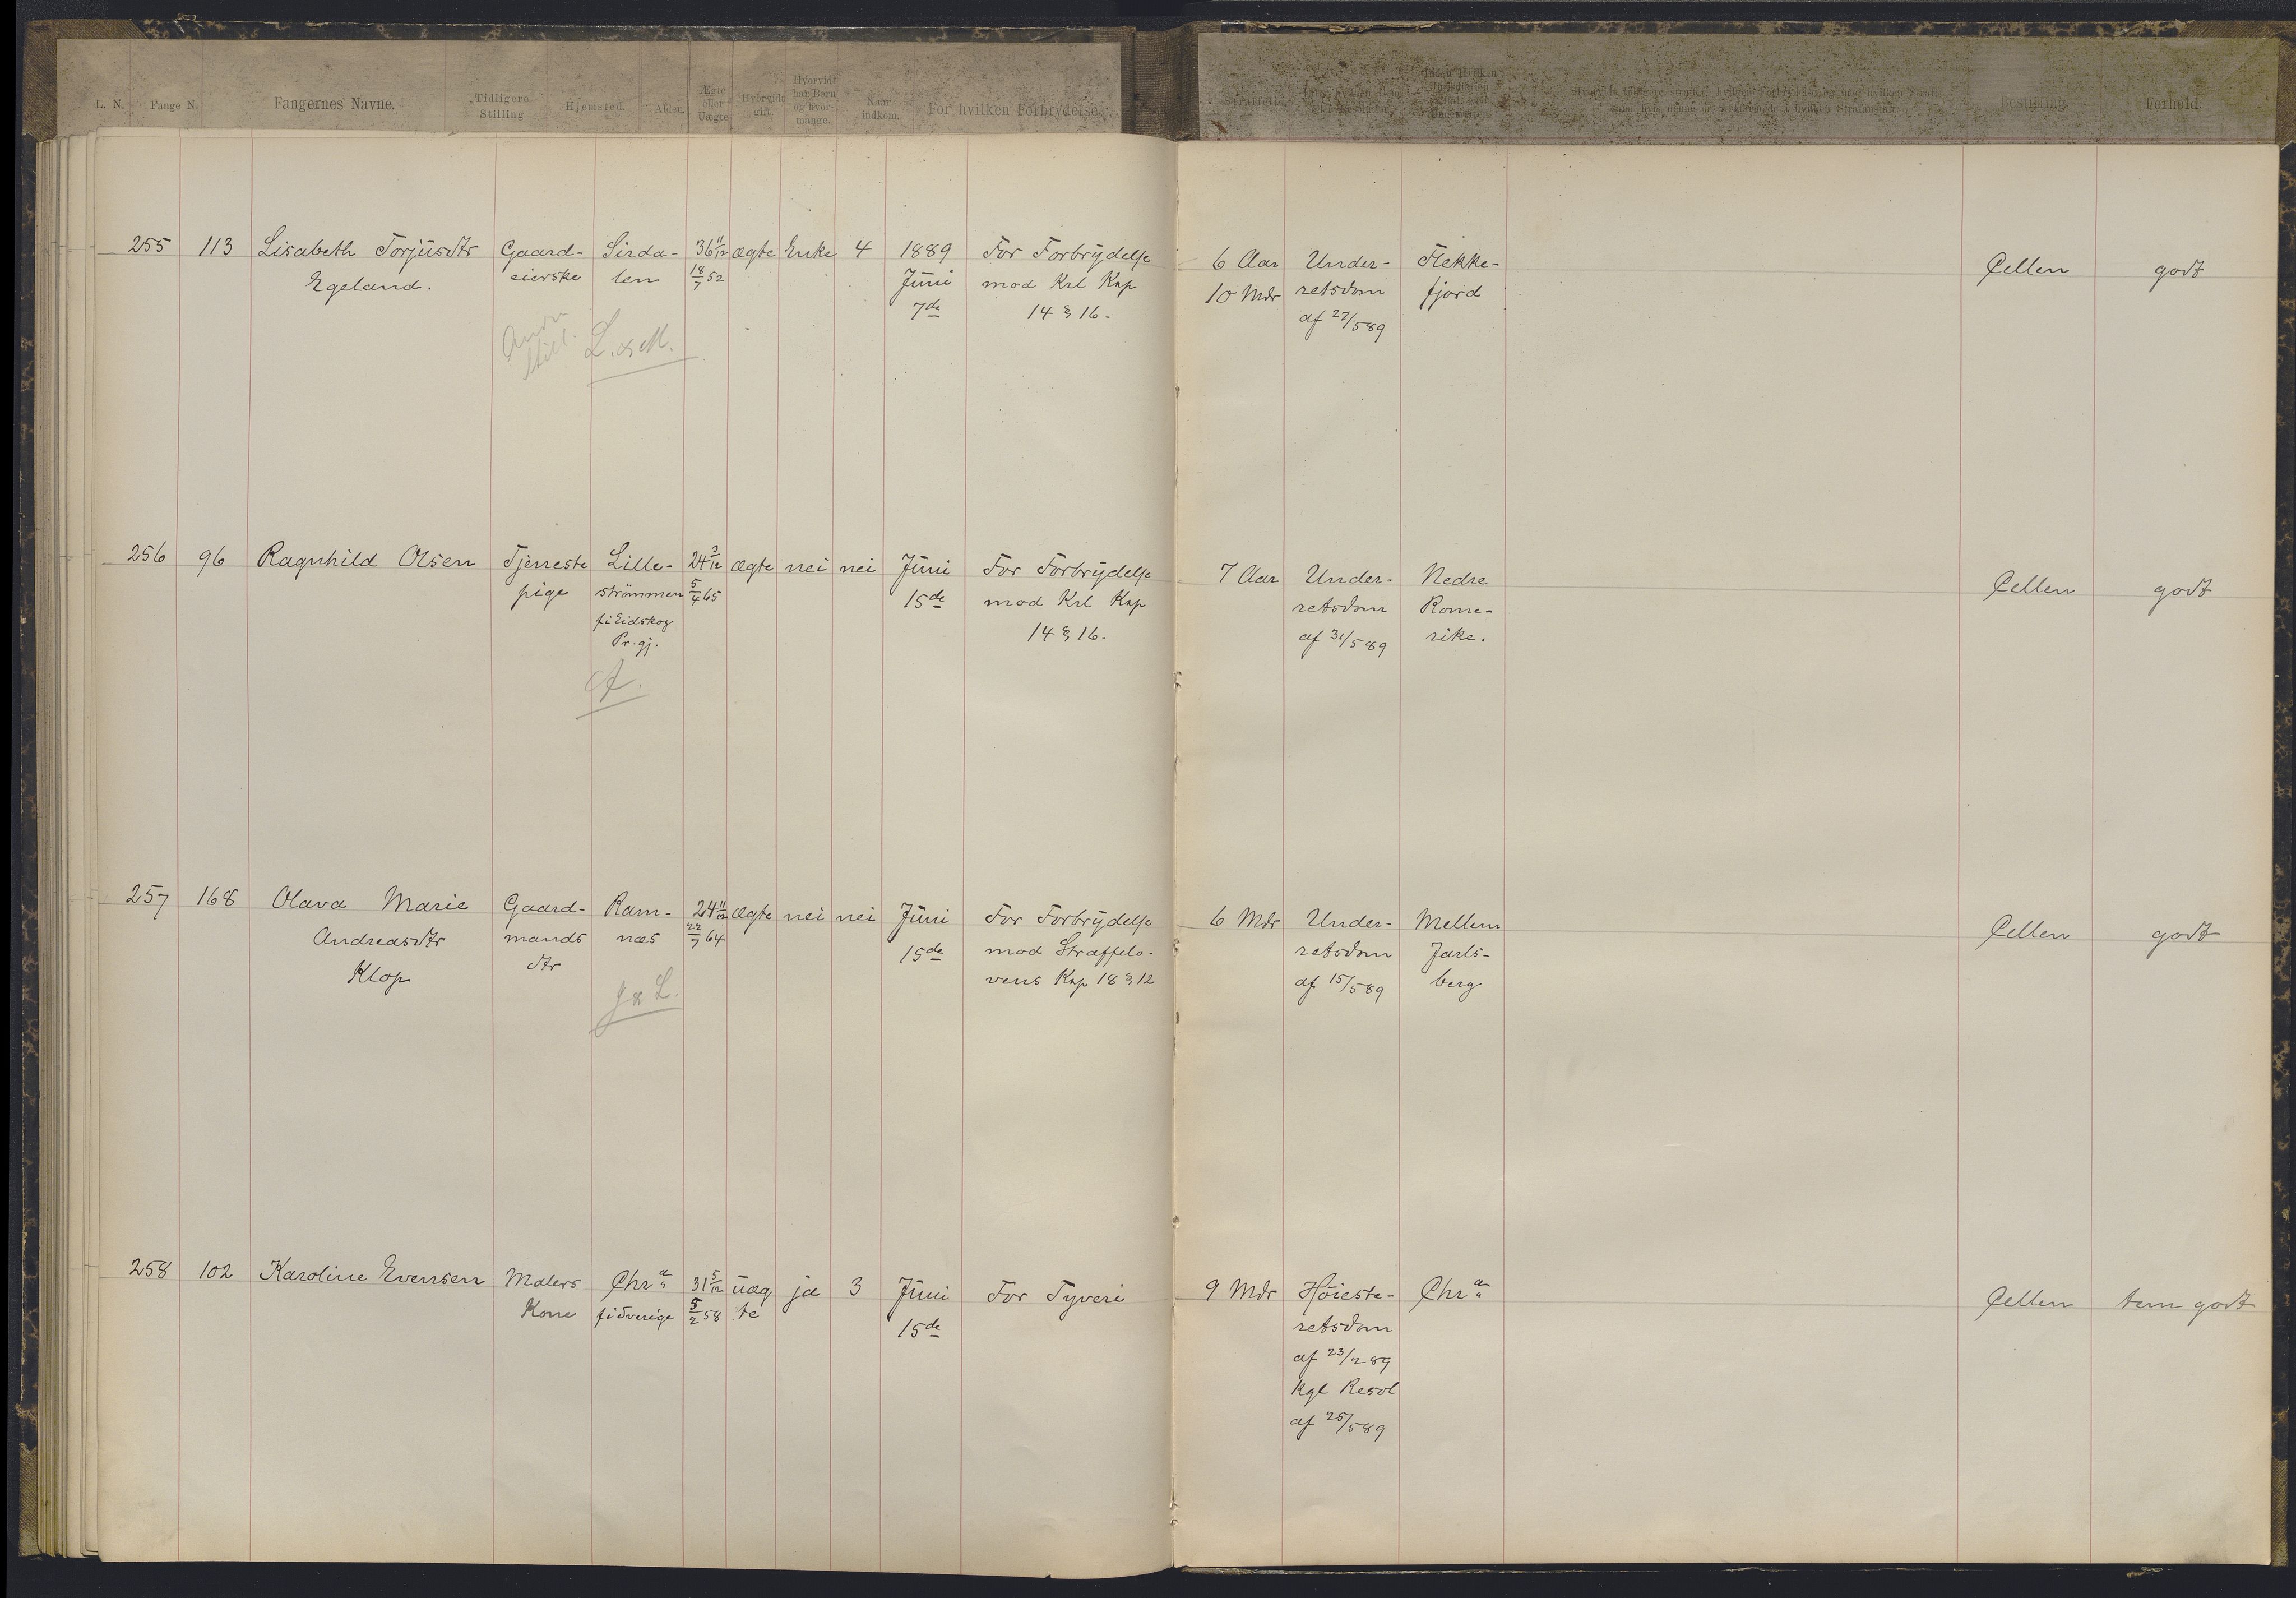 L. N.
Fange N.
Fangernes Navne.
Tidligere
Stilling
Hjemsted.
Alder.
Ægte
eller
Uægte
Hvorvidt
gift.
Hvorvidt
har Børn
og hvor-
mange.
Naar
indkom.
For hvilken Forbrydelse.
Straffetid.
Bestilling.
Forhold.
255 113 Lisabeth Torjusdtr Gaard- Sirda- 36 11/12 ægte Enke 4 1889 For Forbrydelse 6 Aar Under- Flekke- Cellen godt
Egeland. eierske len 18/7 52 Juni mod Krl Kap 10 Mdr retsdom fjord
7de 14 § 16. af 27/5 89
L. & M.
256 96 Ragnhild Olsen Tjeneste Lille- 24 2/12 ægte nei nei Juni For Forbrydelse 7 Aar Under- Nedre Cellen godt
pige strömmen 5/4 65 15de mod Krl Kap retsdom Rome-
f i Eidskog 14 § 16. af 31/5 89 rike.
Pr. gj.
A.
257 168 Olava Marie Gaard- Ram- 24 11/12 ægte nei nei Juni For Forbrydelse 6 Mdr Under- Mellem Cellen godt
Andreasdtr mands næs 22/7 64 15de mod Straffelo- retsdom Jarls-
Klop dtr vens Kap 18 § 12 af 15/5 89 berg
J & L.
258 102 Karoline Evensen Malers Chr a 31 5/12 uæg ja 3 Juni For Tyveri 9 Mdr Höieste- Chr a Cellen tem godt
Kone f i Sverige 5/2 58 te 15de retsdom
af 23/2 89
Kgl Resol
af 25/5 89